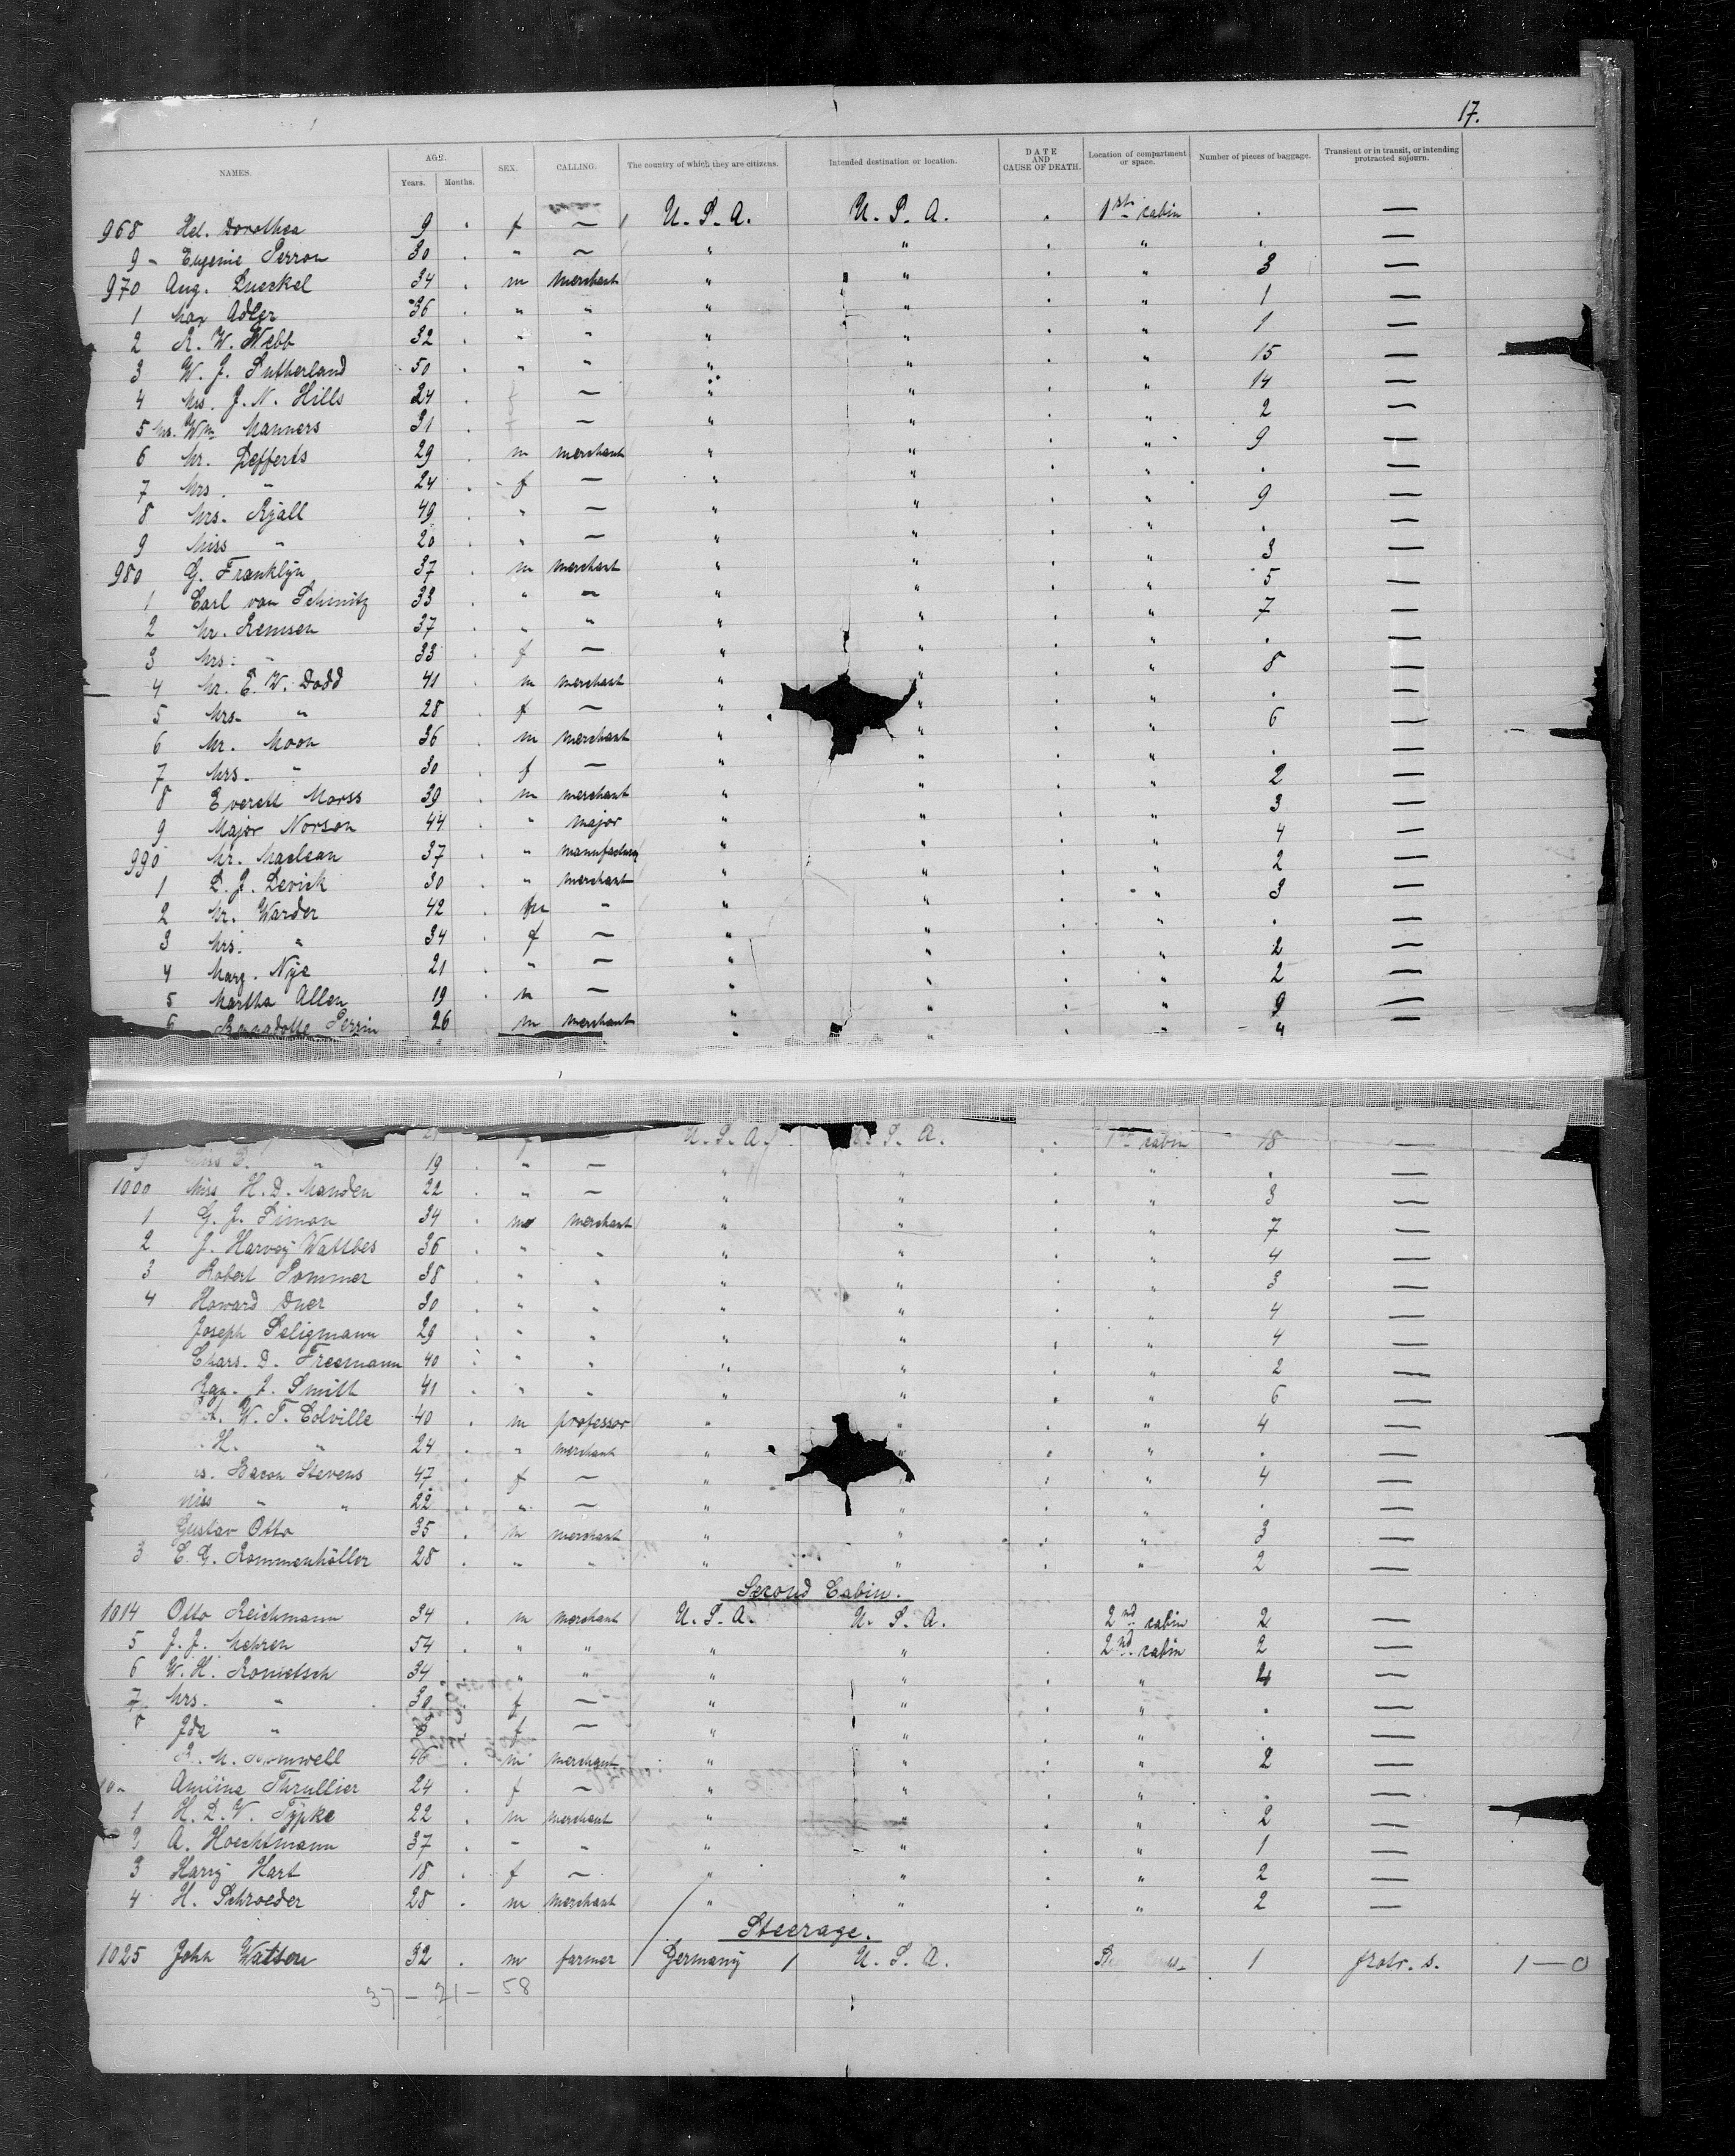 17.
NAMES. AGE. Years. Months. SEX. CALLING. The country of which they are citizens. Intended destination or location. DATE AND CAUSE OF DEATH. Location of compartment or space. Number of pieces of baggage. Transient or in transit, or intending protracted sojourn.
968 Hel. Dorothea 9 . f — U. S. A. U. S. A. . 1st cabin . —
9 - Eugenie Perron 30 . " — " " . " . —
970 Aug. 34 . m merchant " " . " 3 —
1 Max Adler 36 . " " " " . " 1 —
2 R. W. Webb 32 . " " " " . " 1 —
3 W. J. Sutherland 50 . " " " " . " 15 —
4 Mrs. J. N. Hills 24 . f — " " . " 14 —
5 Mr. Wm Manners 31 . — " " . " 2 —
6 Mr. Jefferts 29 . m merchant " " . " 9 —
7 Mrs. " 24 . f — " " . " . —
8 Mrs. Ryall 49 . " — " " . " 9 —
9 Miss " 20 . " — " " . " . —
980 G. Franklyn 37 . m merchant " " . " 3 —
1 Carl van Schmitz 33 . " " " " . " 5 —
2 Mr. Remsen 37 . " " " " . " 7 —
3 Mrs. " 33 . f — " " . " . —
4 Mr. E. W. Dodd 41 . m merchant " " . " 8 —
5 Mrs. " 28 . f — " " . " . —
6 Mr. Moon 36 . m merchant " " . " 6 —
7 Mrs. " 30 . f — " " . " . —
8 Everett Morss 39 . m merchant " " . " 2 —
9 Major Norson 44 . " major " " . " 3 —
990 Mr. Maclean 37 . " manufacturer " " . " 4 —
1 D. J. Devick 30 . " merchant " " . " 2 —
2 Mr. Warder 42 . m " " " . " 3 —
3 Mrs. " 34 . f — " " . " . —
4 Marg. Nye 21 . " — " " . " 2 —
5 Martha Allen 19 . m — " " . " 2 —
6 Bernadotte Perrin 26 m merchant " " . " 9 —
" " . " 4 —
21 f — U. S. A. U. S. A. . 1st cabin 18 —
9 Miss " 19 . " — " " . " . —
1000 Miss H. D. Manden 22 . " — " " . " 3 —
1 G. J. Simon 34 . m merchant " " . " 7 —
2 J. Harvey Wattbes 36 . " " " " . " 4 —
3 Robert Sommer 38 . " " " " . " 3 —
4 Howard Duer 30 . " " " " . " 4 —
Joseph Seligmann 29 . " " " " . " 4 —
Chars. D. Freemann 40 . " " " " . " 2 —
J. Smith 41 . " " " " . " 6 —
W. T. Colville 40 . m professor " " . " 4 —
H. " 24 . " merchant " " . " . —
Bacon Stevens 47 . f — " . " 4 —
Miss " " 22 . " — " " . " . —
Gustav Otto 35 . m merchant " " . " 3 —
3 C. G. Rommenhöller 28 . " " " " . " 2 —
Second Cabin.
1014 Otto Reichmann 34 . m merchant U. S. A. U. S. A. 2nd cabin 2 —
5 J. J. Mehren 54 . " " " " . 2nd cabin 2 —
6 W. H. Rometsch 34 . " " " " . " 4 —
7 Mrs. " 30 . f — " " . " . —
8 Ida " f — " " . " . —
46 . m merchant " " . " 2 —
Amiina Thrullier 24 . f — " " . " . —
1 H. D. V. Typke 22 . m merchant " " . " 2 —
2 A. Hoechtmann 37 . " " " " . " 1 —
3 Harry Hart 18 . f — " " . " 2 —
4 H. Schroeder 28 . m merchant " " . " 2 —
Steerage.
1025 John Watson 32 . m farmer Germany 1 U. S. A. 1 protr. s. 1 — 0
37 — 21 — 58